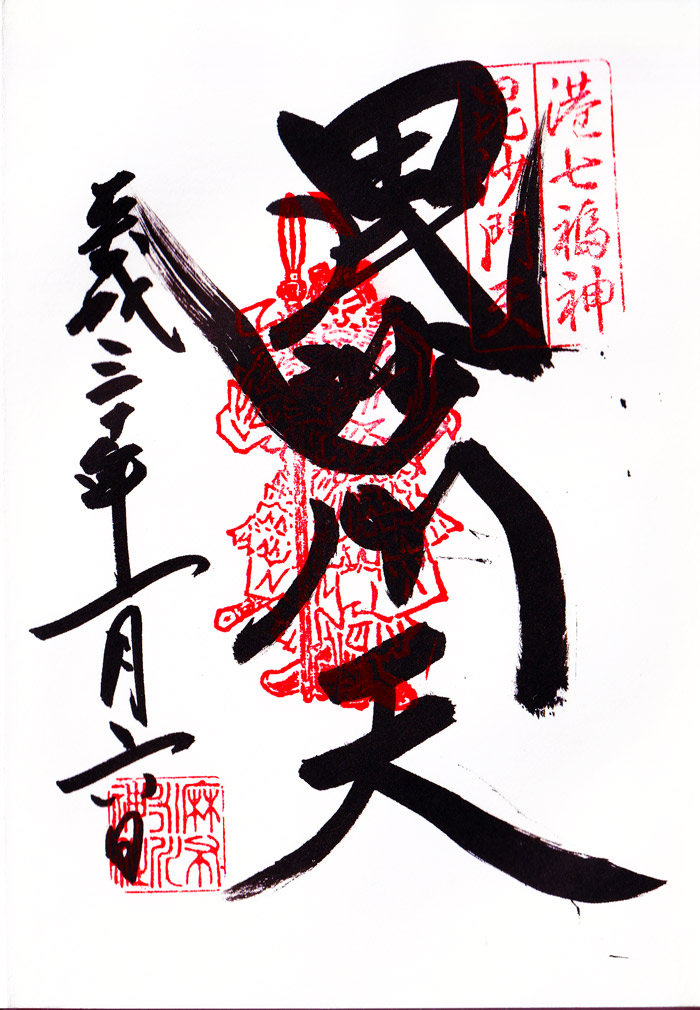 港七福神
毘沙門天
毘沙門天
平成三十年一月六日
麻布氷川神社